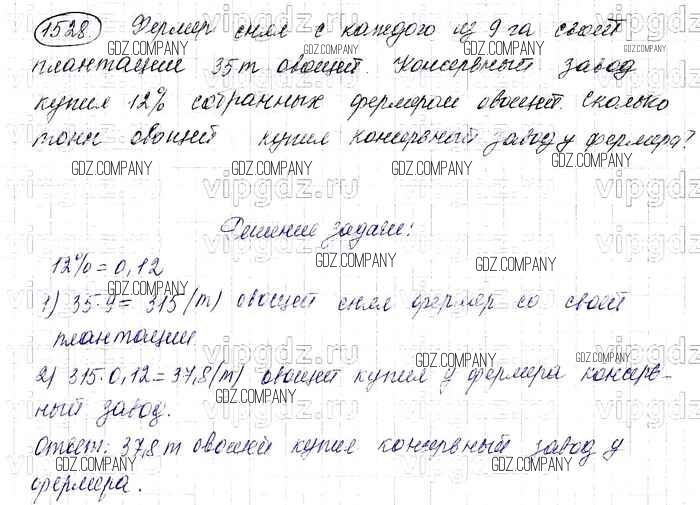 1528. Фермер снял с каждого из 9 га своей
плантации 35 т овощей. Консервный завод
купил 12% собранных фермером овощей. Сколько
тонн овощей купил консервный завод у фермера?
Решение задачи:
12% = 0,12
1) 35·9 = 315 (т) овощей снял фермер со своей
плантации
2) 315·0,12 = 37,8 (т) овощей купил у фермера консерв-
ный завод.
Ответ: 37,8 т овощей купил консервный завод у
фермера.
vipgdz.ru
GDZ.COMPANY